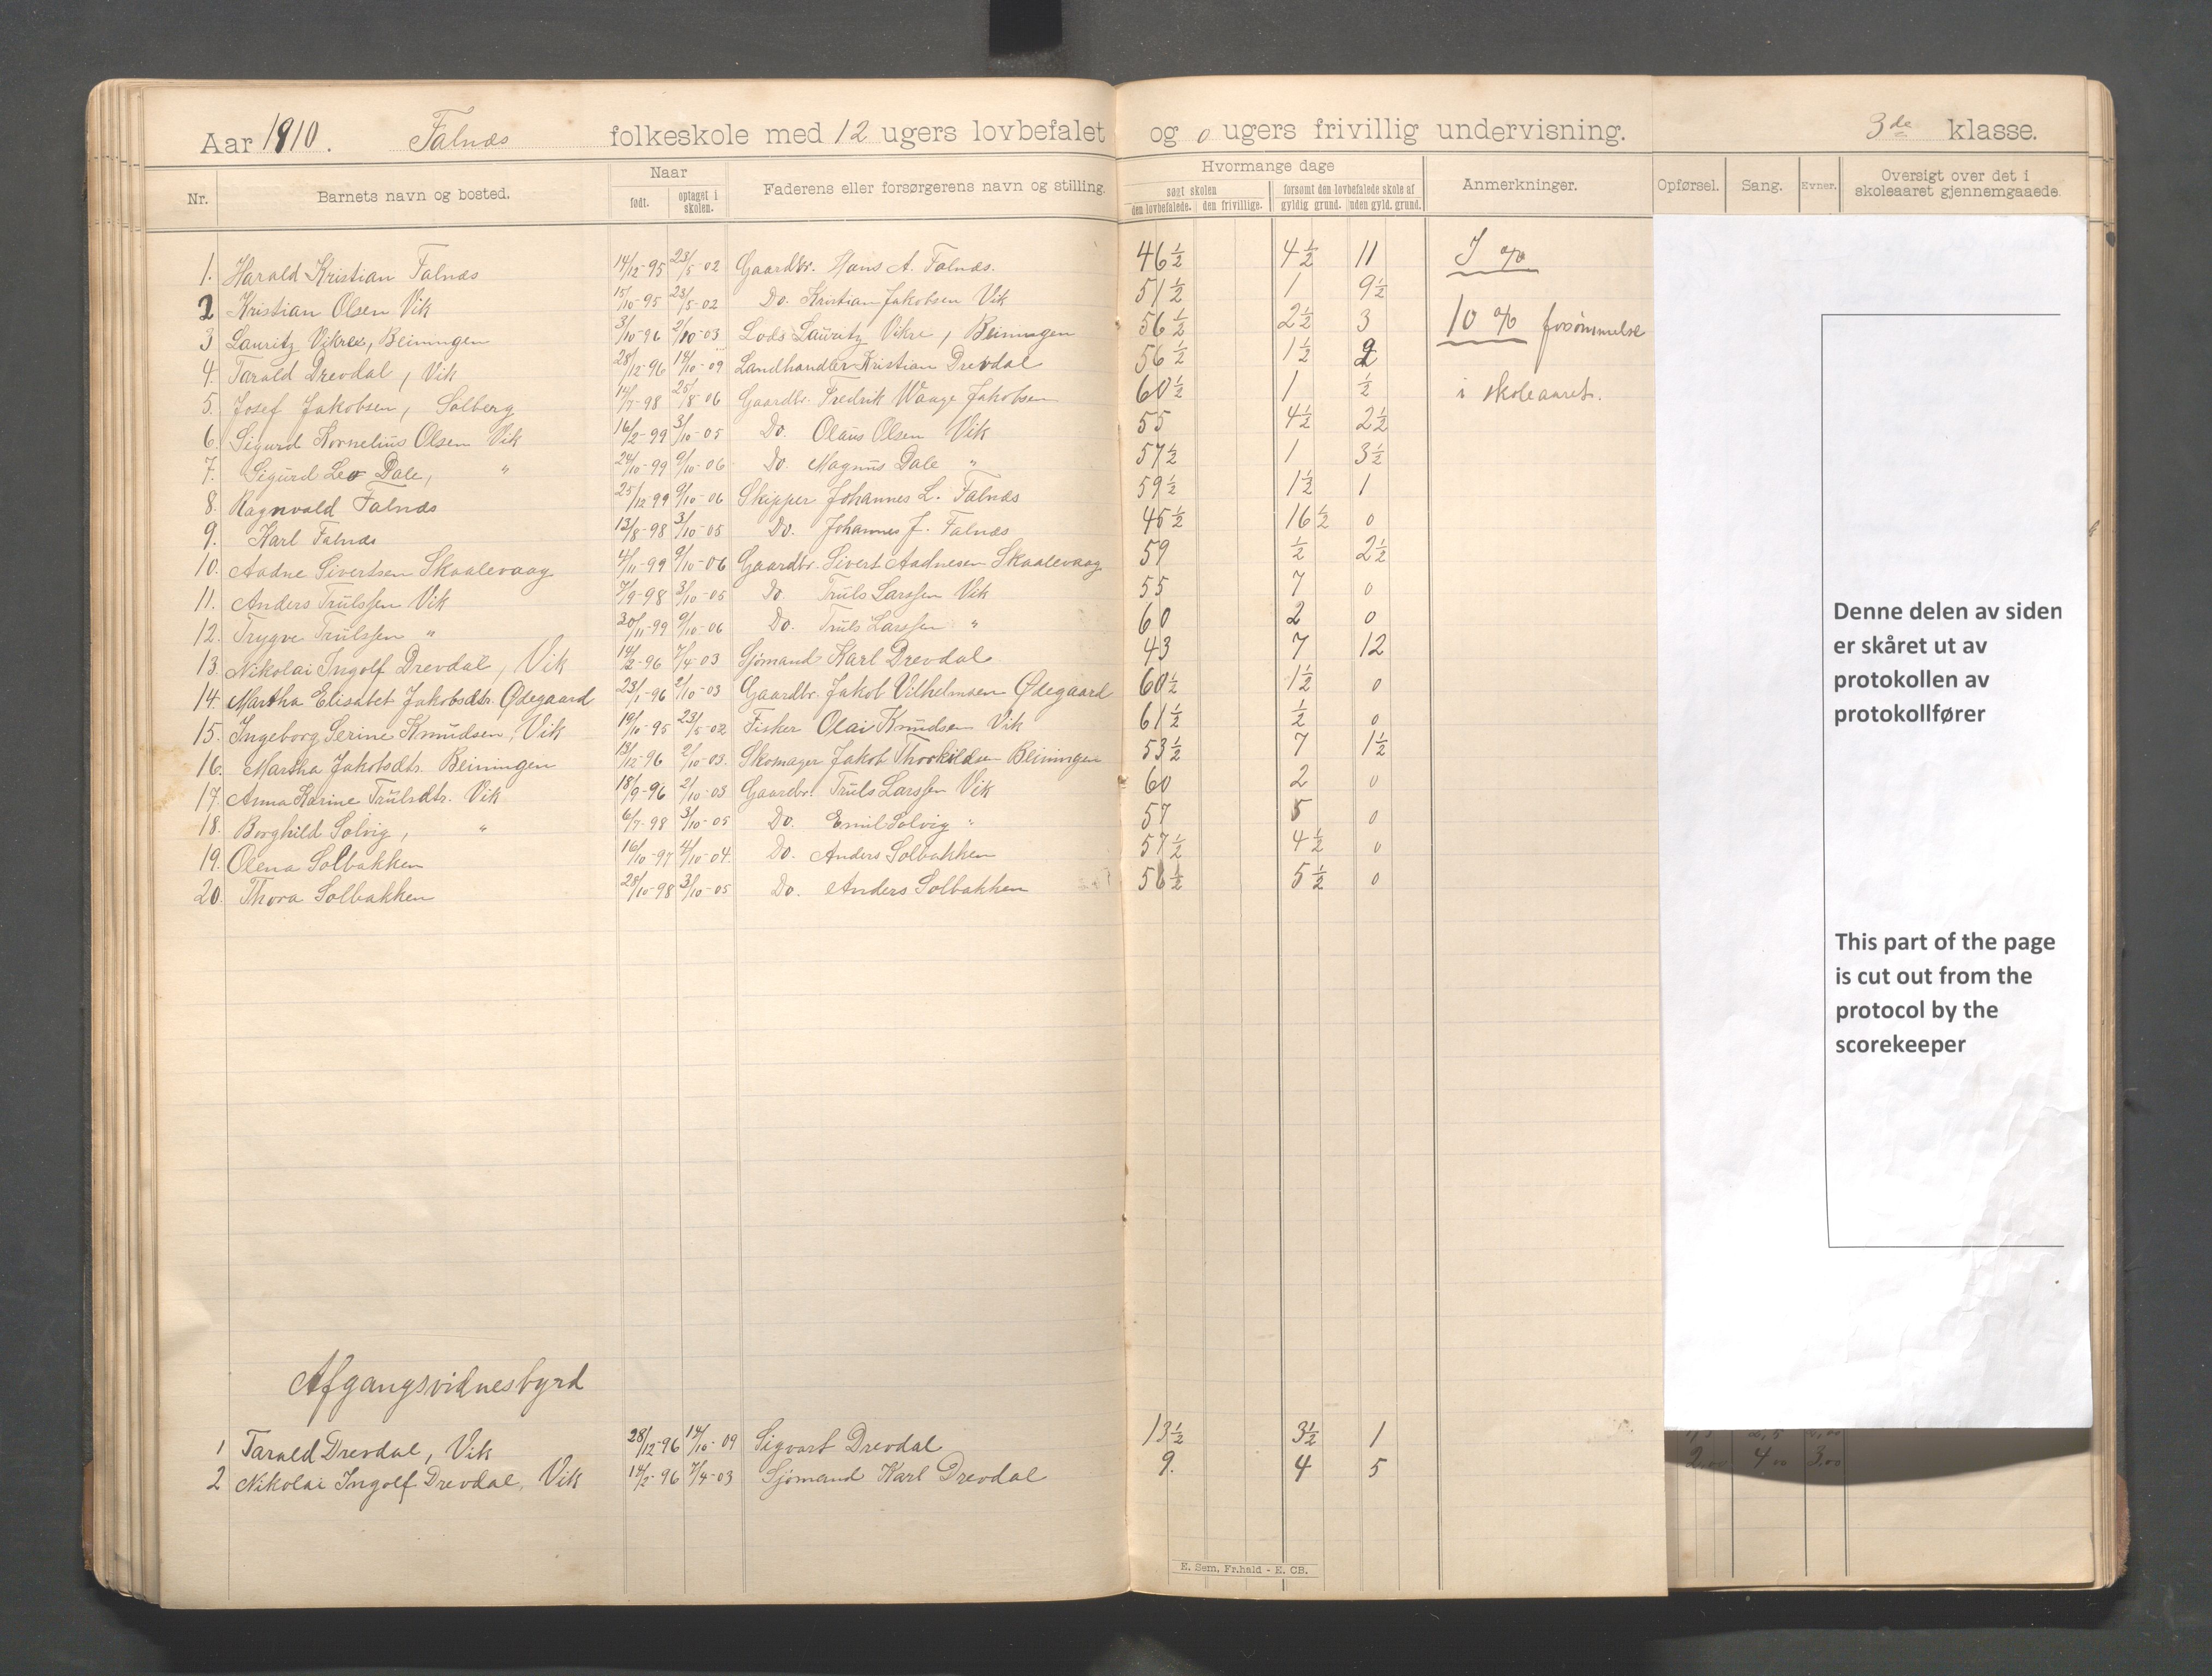 Aar 1910. Falnæs folkeskole med 12 ugers lovbefalet og 0 ugers frivillig undervisning. 3de klasse.
Nr. Barnets navn og bosted. Naar født. optaget i skolen. Faderens eller forsørgerens navn og stilling. Hvormange dage søgt skolen den lovbefalede. den frivillige. forsømt den lovbefalede skole af gyldig grund. uden gyld. grund. Anmerkninger. Opførsel. Sang. Evner. Oversigt over det i skoleaaret gjennemgaaede.
1. Harald Kristian Falnæs 14/12-95 23/5-02 Gaardbr. Hans A. Falnæs. 46½ 4½ 11 %
2 Kristian Olsen Vik 15/10-95 23/5-02 Do. Kristian Jakobsen Vik 51½ 1 9½
3 Lauritz Vikre, Beiningen 3/10-96 2/10-03 Lods Lauritz Vikre, Beiningen 56½ 2½ 3 10 % forsømmelse
4. Tarald Drevdal, Vik 28/12-96 14/10-09 Landhandler Kristian Drevdal 56½ 1½ 2
5. Josef Jakobsen, Solberg 14/7-98 25/8-06 Gaardbr. Fredrik Waage Jakobsen 60½ 1 ½ i skoleaaret.
6. Sigurd Kornelius Olsen Vik 16/2-99 3/10-05 Do. Olaus Olsen Vik 55 4½ 2½
7. Sigurd Leo Dale, " 24/10-99 9/10-06 Do. Magnus Dale " 57½ 1 3½
8. Ragnvald Falnæs 25/12 99 9/10-06 Skipper Johannes L. Falnæs 59½ 1½ 1
9. Karl Falnæs 13/8-98 3/10-05 Do. Johannes J. Falnæs 45½ 16½ 0
10. Aadne Sivertsen Skaalevaag 4/11-99 9/10-06 Gaardbr. Sivert Aadnesen Skaalevaag 59 ½ 2½
11. Anders Trulssen Vik 7/9-98 3/10-05 Do. Truls Larssen Vik 55 7 0
12. Trygve Trulssen " 30/11-99 9/10-06 Do. Truls Larssen " 60 2 0
13. Nikolai Ingolf Drevdal, Vik 14/2-96 7/4-03 Sjømand Karl Drevdal 43 7 12
14. Martha Elisabet Jakobsdtr. Ødegaard 23/1-96 2/10-03 Gaardbr. Jakob Vilhelmsen Ødegaard 60½ 1½ 0
15. Ingeborg Serine Knudsen, Vik 19/10-95 23/5-02 Fisker Olai Knudsen Vik 61½ ½ 0
16. Martha Jakobsdtr. Beiningen 13/12-96 2/10-03. Skomager Jakob Thorkildsen Beiningen 53½ 7 1½
17. Anna Karine Trulsdtr. Vik 18/9-96 2/10-03 Gaardbr. Truls Larssen Vik 60 2 0
18. Borghild Solvig, " 6/7-98 3/10-05 Do. Emil Solvig " 57 5 0
19. Olena Solbakken 16/10-97 4/10-04. Do. Anders Solbakken 57½ 4½ 0
20. Thora Solbakken 28/10-98 3/10-05 Do. Anders Solbakken 56½ 5½ 0
Denne delen av siden
er skåret ut av
protokollen av
protokollfører
This part of the page
is cut out from the
protocol by the
scorekeeper
Afgangsvidnesbyrd
1 Tarald Drevdal, Vik 28/12-96 14/10-09 Sigvart Drevdal 13½ 3½ 1
2 Nikolai Ingolf Drevdal, Vik 14/2-96 7/4-03 Sjømand Karl Drevdal 9. 4 5 2,00 4,00 3,00
E. Sem, Fr.hald - E. CB.